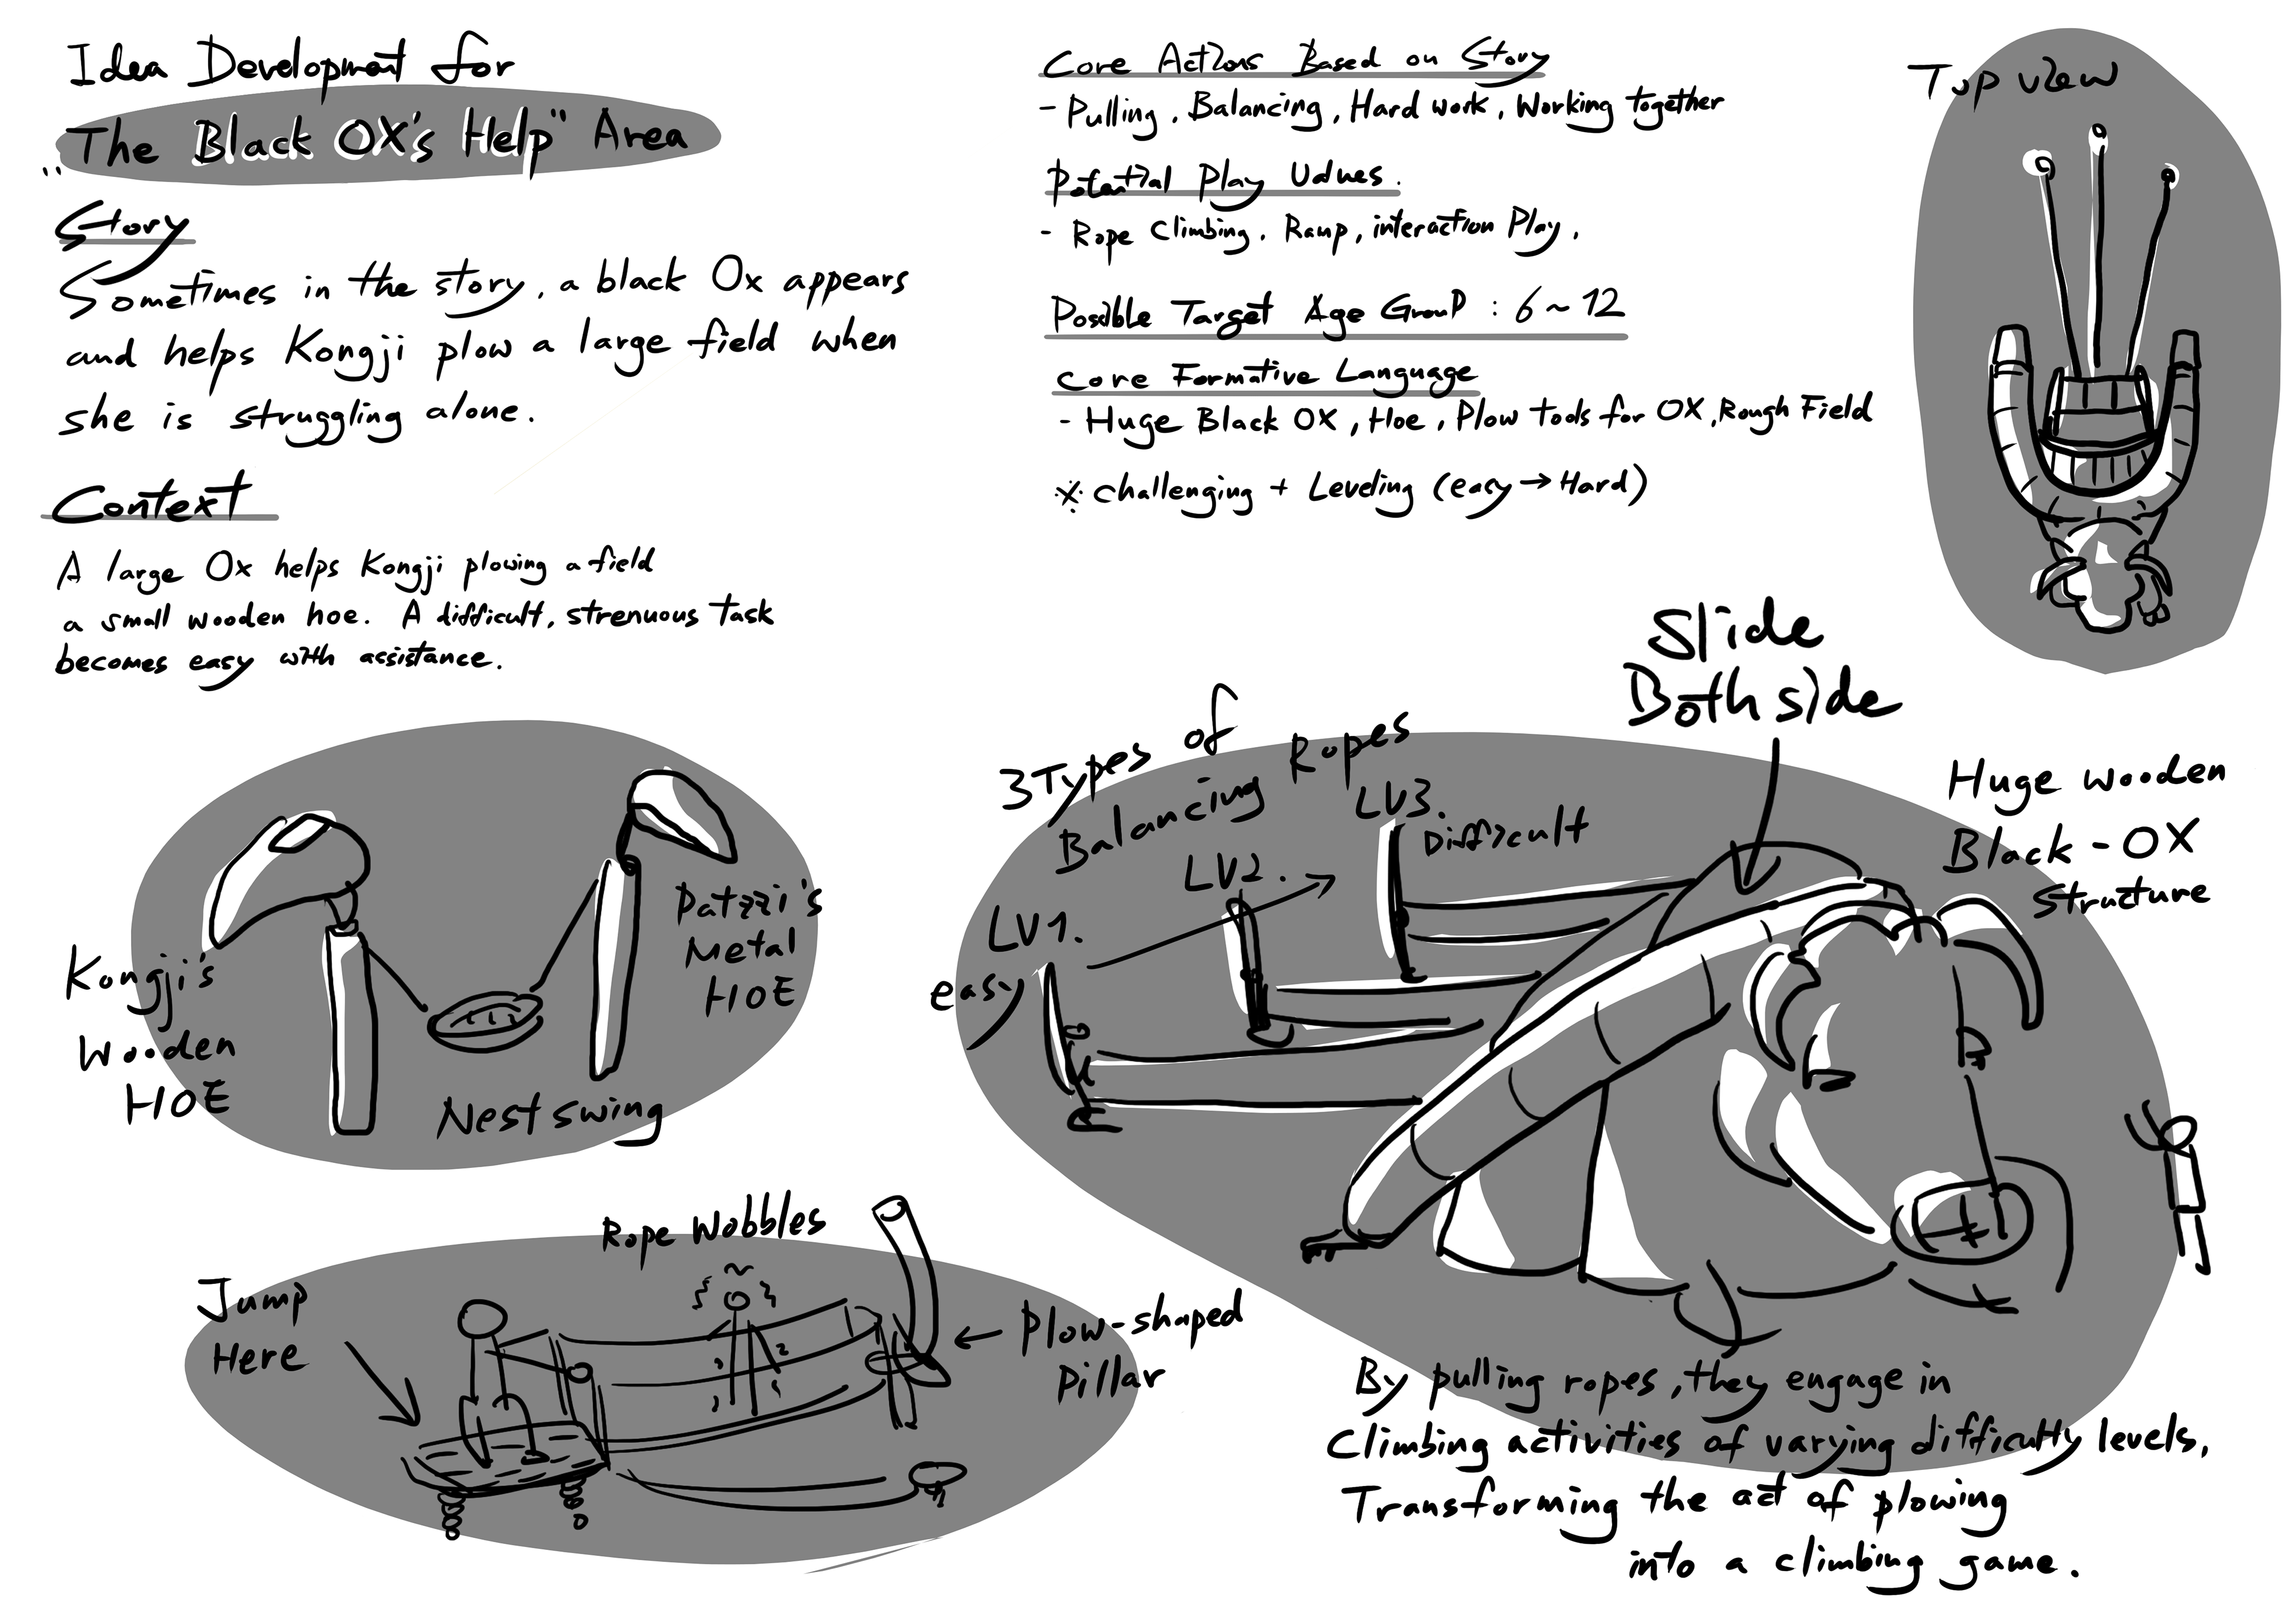 Idea Development for
"The Black OX's Help" Area
Story
Sometimes in the story, a black Ox appears
and helps Kongji plow a large field when
she is struggling alone.
Context
A large Ox helps Kongji plowing a field
a small wooden hoe. A difficult, strenuous task
becomes easy with assistance.
Core Actions Based on Story
- Pulling, Balancing, Hard work, Working together
Potential Play Values.
- Rope Climbing, Ramp, interaction Play.
Possible Target Age Group : 6~12
Core Formative Language
- Huge Black OX, Hoe, Plow tools for OX, Rough Field
※ Challenging + Leveling (easy → Hard)
Top view
Kongji's
Wooden
HOE
Patzzi's
Metal
HOE
Nest swing
3 Types of
Balancing Ropes
LV1.
easy
LV2.
LV3.
Difficult
Slide
Both side
Huge wooden
Black-OX
Structure
Rope Wobbles
Jump
Here
Plow-shaped
Pillar
By pulling ropes, they engage in
Climbing activities of varying difficulty levels,
Transforming the act of plowing
into a climbing game.